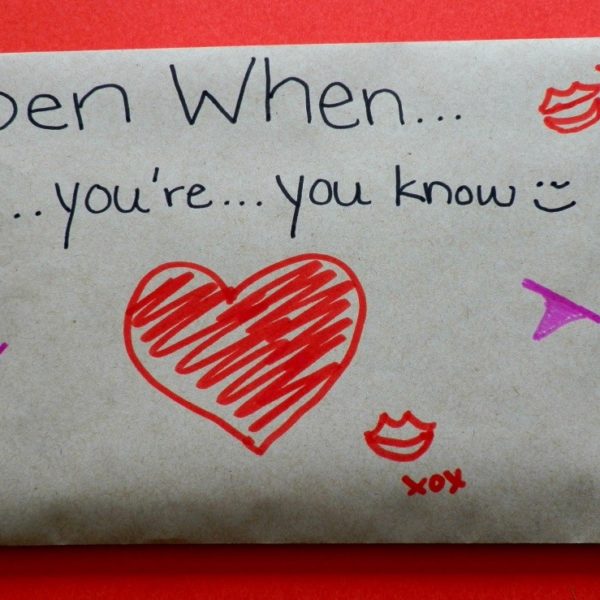 pen When...
...you're...you know
xox